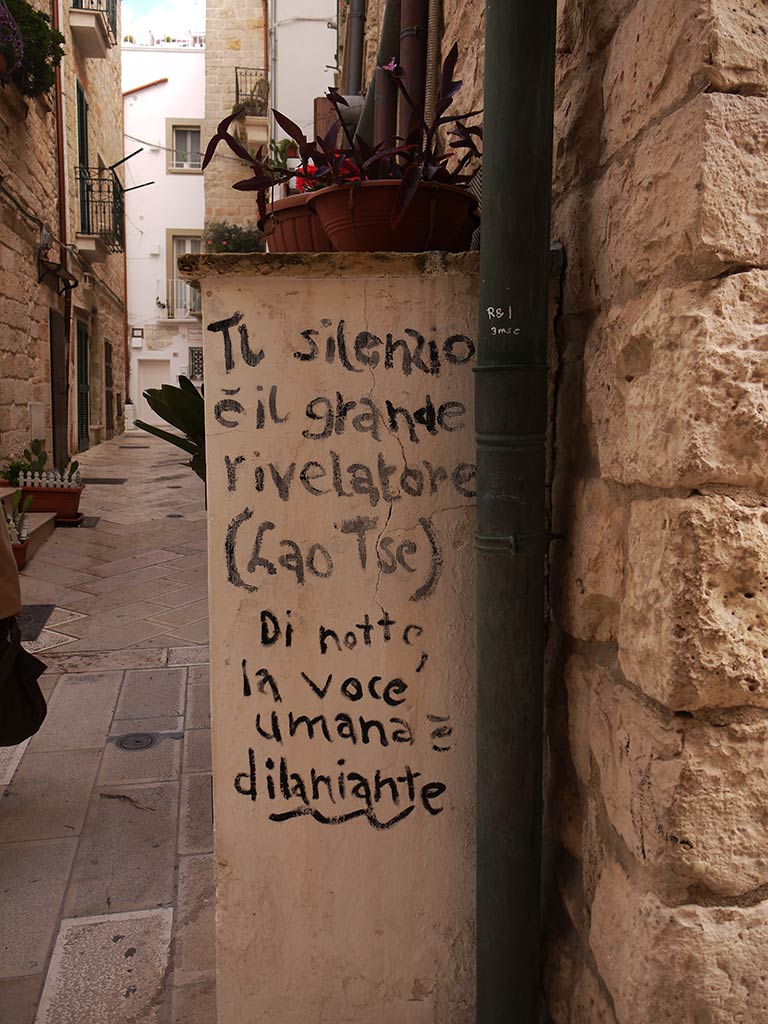 Il silenzio
è il grande
rivelatore
(Lao Tse)
Di notte,
la voce
umana è
dilaniante
R&I
3msc